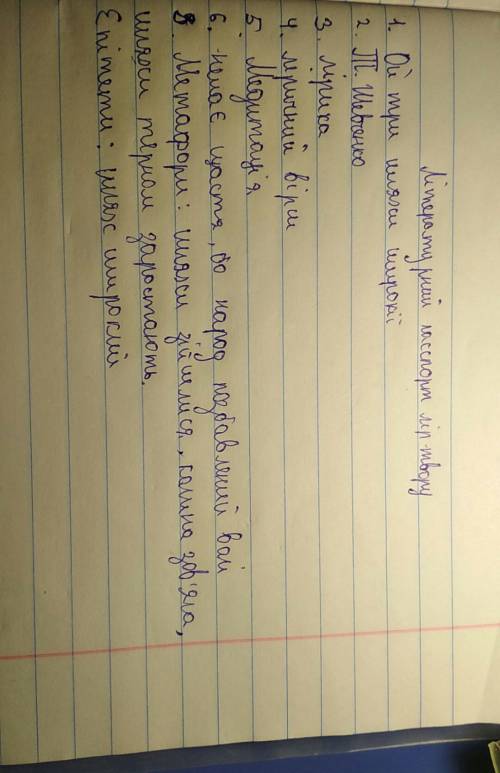 Літературний пасспорт лір-твору
1. Ой три шляхи широкії
2. Т. Шевченко
3. лірика
4. ліричний вірш
5 Медитація
6. Немає щастя, бо народ позбавлений волі
8. Метафори: шляхи зійшлися, калина зов'яла,
шляхи терном заростають.
Епітети: шлях широкий